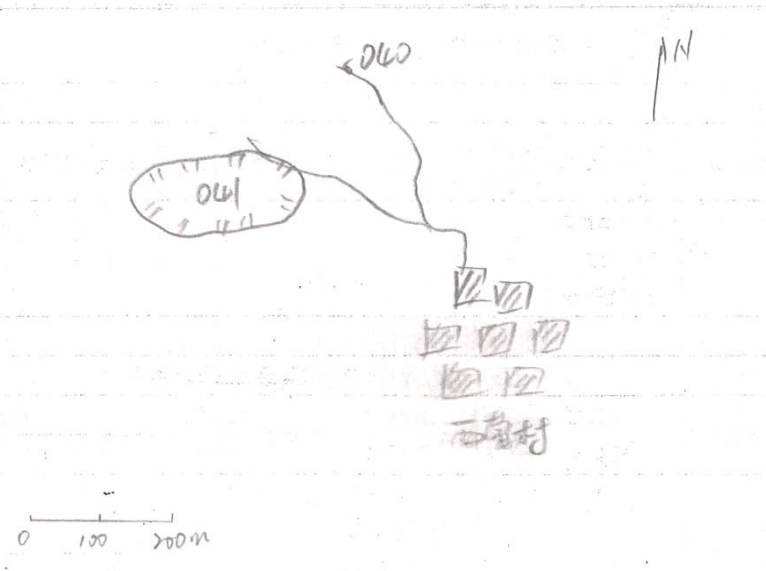 040
N
041
0 100 200m